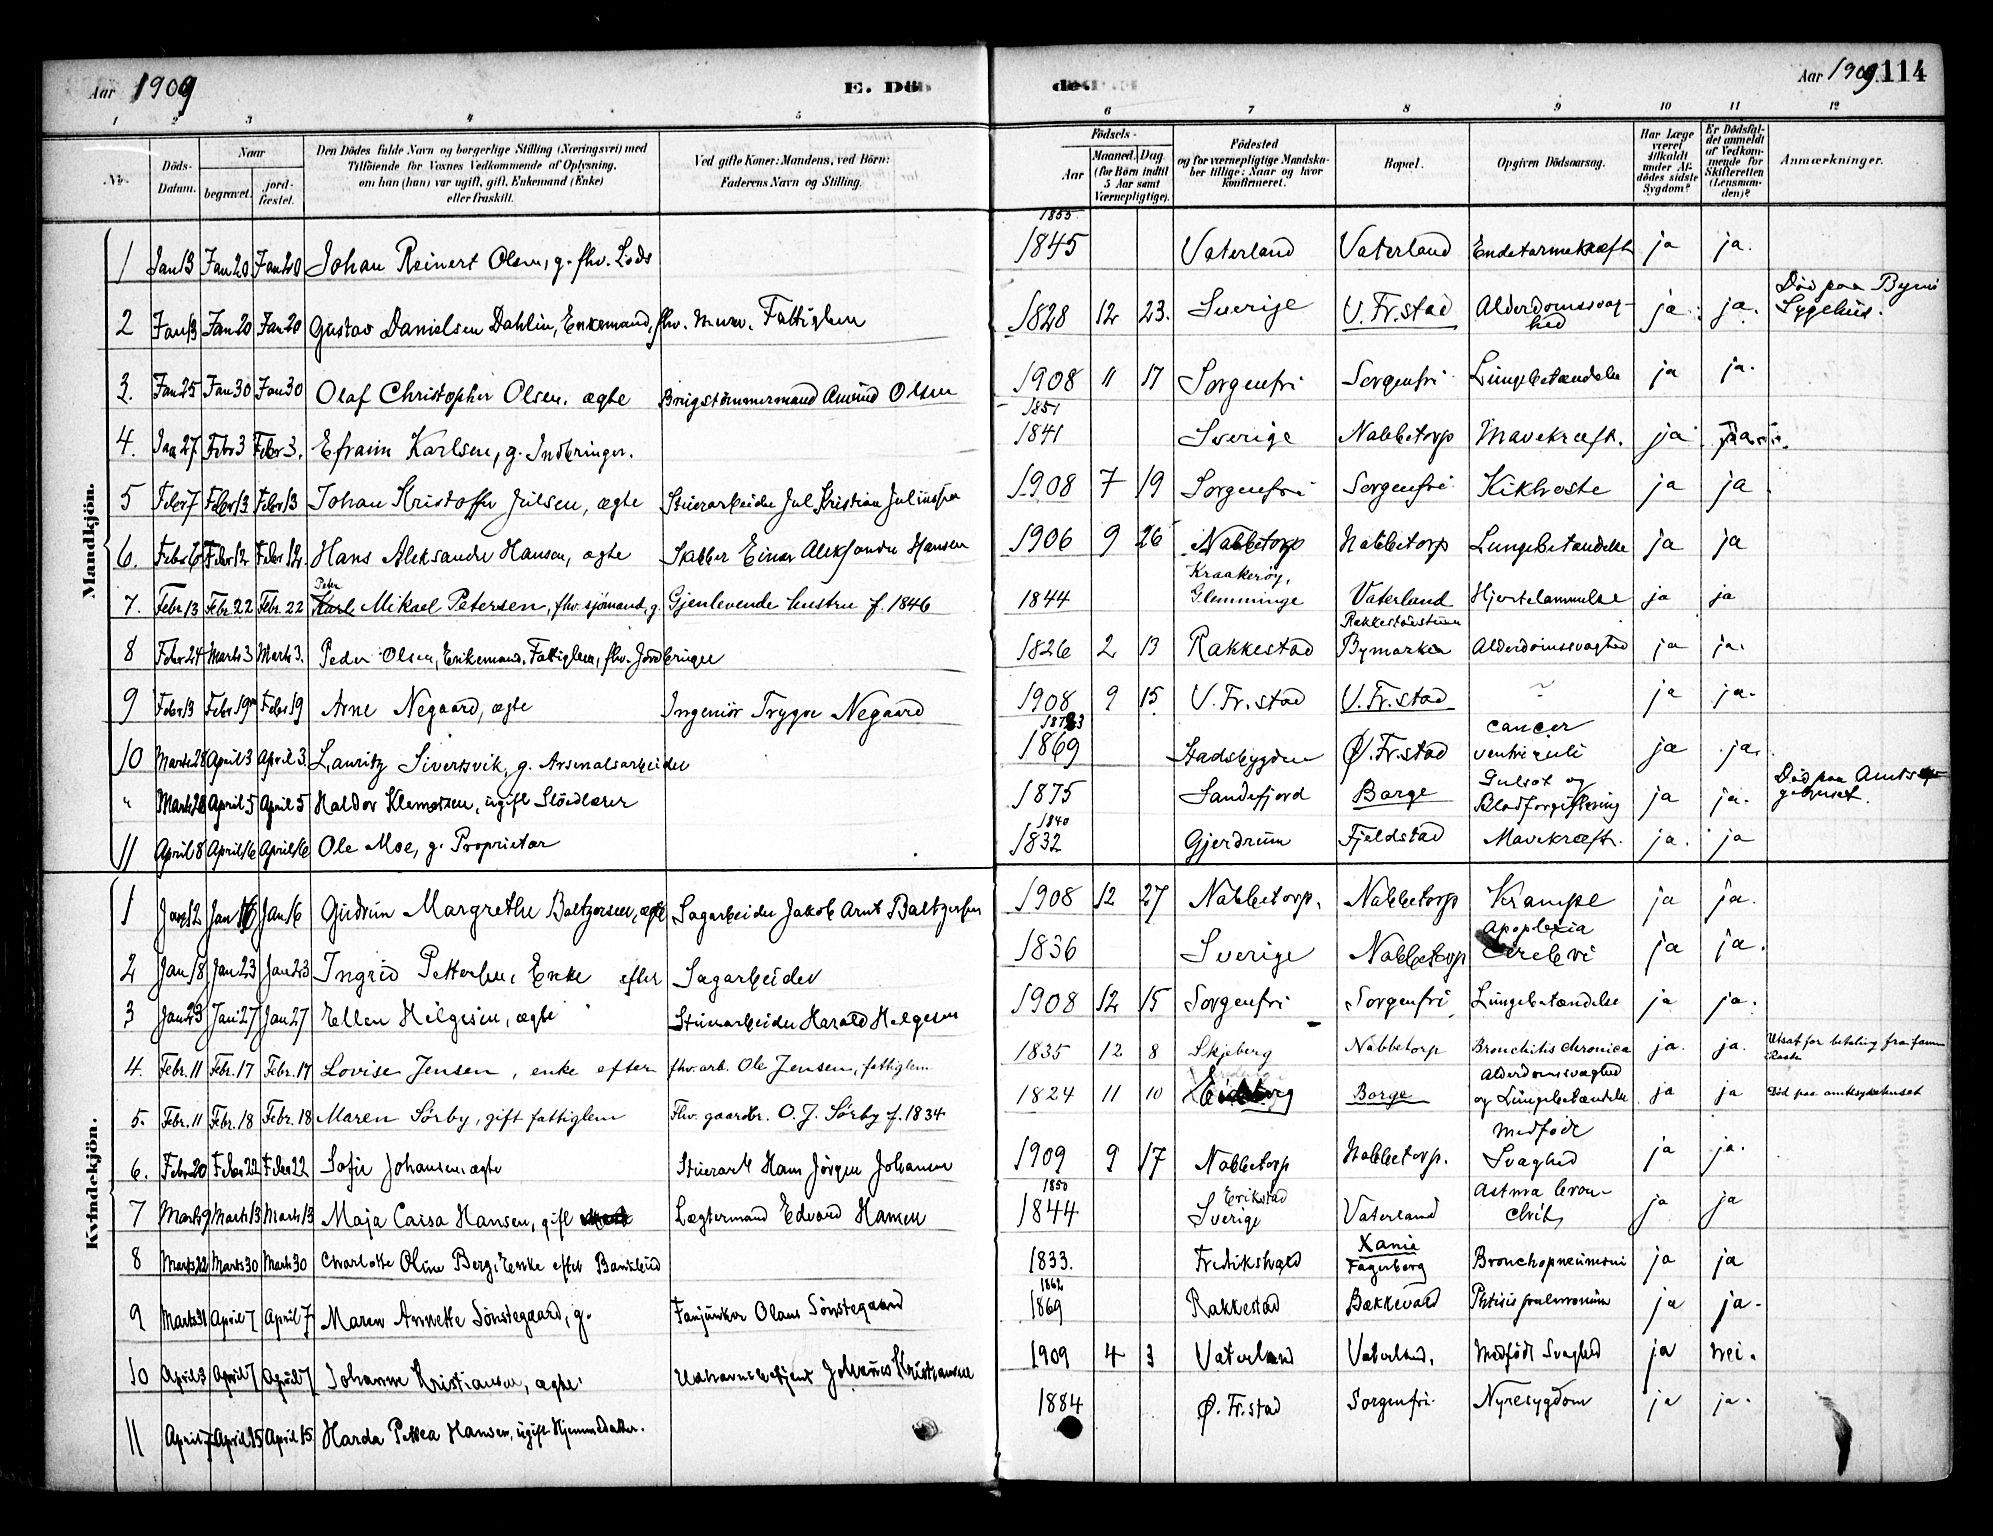 Aar 1909
E. Dö
de
Aar 1909. 114
1 2 3 4 5 6 7 8 9 10 11 12
No.
Döds-Datum.
Naar
begravet.
jord-fæstet.
Den Dödes fulde Navn og borgerlige Stilling (Næringsvei) med
Tilföiende for Voxnes Vedkommende af Oplysning.
om han (hun) var ugift, gift, Enkemand (Enke)
eller fraskilt.
Ved gifte Koner: Mandens, ved Börn:
Faderens Navn og Stilling.
Födsels-
Aar
Maaned. Dag.
(for Börn indtil
5 Aar samt
Værnepligtige).
Födested
og for værnepligtige Mandska-
ber tillige: Naar og hvor
konfirmeret.
Bopæl.
Opgiven Dödsaarsag.
Har Læge
været
tilkaldt
under Af-
dödes sidste
Sygdom?
Er Dödsfal-
det anmeldt
af Vedkom-
mende for
Skifteretten
(Lensman-
den)?
Anmærkninger.
Mandkjön.
1 Jan 13 Jan 20 Jan 20 Johan Reinert Olsen, g. fhv. Lods 1855 1845 Vaterland Vaterland Endetarmekræft ja ja.
2 Jan 13 Jan 20 Jan 20 Gustav Danielsen Dahlin, Enkemand, fhv. Murer. Fattiglem 1828 12 23. Sverige V. Fr.stad Alderdomssvag-hed ja ja. Död paa Byens Sygehus.
3. Jan 25 Jan 30 Jan 30 Olaf Christopher Olsen. ægte Brugstömmermand Amund Olsen 1908 11 17 Sorgenfri Sorgenfri Lungebetændelse ja ja.
4. Jan 27 Febr 3 Febr 3. Efraim Karlsen, g. Indbringer. 1851 1841 Sverige Nabbetorp Mavekræft. ja ja
5 Febr 7 Febr 13 Febr 13 Johan Kristoffer Julsen, ægte Stuerarbeider Jul Kristian Juliussen 1908 7 19 Sorgenfri Sorgenfri Kikhoste ja ja
6. Febr 6 Febr 12 Febr 12. Hans Aleksander Hansen, ægte Skibber Einar Aleksander Hansen 1906 9 26 Nabbetorp Nabbetorp Lungebetændelse ja ja
7. Febr. 13 Febr. 22 Febr. 22 Peter Karl Mikael Petersen, fhv. sjömand, g. Gjenlevende hustru f. 1846 1844 Kraakeröy, Glemminge Vaterland Hjertelammelse ja ja
8 Febr 24 Marts 3 Marts 3. Peder Olsen, Enkemand, Fattiglem, fhv. Jordbruger 1826 2 13 Rakkestad Rakkestadstuen Bymarken Alderdomssvaghed ja ja.
9 Febr 13 Febr 19 Febr 19 Arne Negaard, ægte Ingeniör Trygve Negaard 1908 9 15 V. Fr. stad V. Fr. stad ~ ja ja.
10 Marts 28 April 3 April 3. Lauritz Sivertsvik, g. Arsenalsarbeider 1869 Stadsbygden Ø. Fr. stad Cancer ventriculi ja ja.
" Marts 28 April 5 April 5 Haldor Klemetsen, ugift Slöidlærer 1875 Sandefjord Borge Gulsot og Blodforgiftning ja ja. Död paa Amtssygehuset.
11 April 8 April 16 April 16 Ole Moe, g. Proprietær 1840 1832 Gjerdrum Fjeldstad Mavekræft. ja. ja
Kvindekjön.
1 Jan 12 Jan 16 Jan 16 Gudrun Margrethe Baltzersen, ægte Sagarbeider Jakob Arnt Baltzersen 1908 12 27 Nabbetorp. Nabbetorp Krampe ja ja.
2 Jan 18 Jan 23 Jan 23 Ingrid Pettersen, Enke efter Sagarbeider 1836 Sverige Nabbetorp Apoplexia cerebri ja ja.
3 Jan 23 Jan 27 Jan 27 Ellen Helgesen, ægte Stuerarbeider Harald Helgesen 1908 12 15 Sorgenfri Sorgenfri Lungebetændelse ja ja.
4. Febr. 11 Febr. 17 Febr. 17 Lovise Jensen, enke efter fhv. arb. Ole Jensen, fattiglem 1835 12 8 Skjeberg Nabbetorp Bronchitis chronica ja. ja. Utsat for betaling fra
5. Febr. 11 Febr. 18 Febr. 18 Maren Sörby, gift fattiglem Fhv. gaardbr. O. J. Sörby f. 1834 1824 11 10 Borge Alderdomssvaghed og Lungebetændelse ja ja Död paa amtssykehuset
6. Febr 20 Febr 22 Febr 22 Sofie Johansen, ægte Stuerarb Hans Jörgen Johansen 1909 9 17 Nabbetorp Nabbetorp. Medfödt Svaghed ja ja.
7 Marts 9 Marts 13 Marts 13 Maja Caisa Hansen, gift Lægtermand Edvard Hansen 1850 1844 Erikstad Sverige Vaterland Astma bron-chit, ja ja
8 Marts 22 Marts 30 Marts 30 Charlotte Oline Berg, Enke efter Bankbud 1833. Fredrikshald Xania Fagerborg Bronchopneumoni ja ja
9 Marts 31 April 7 April 7 Maren Annette Sönstegaard, g. Fanjunker Olaus Sönstegaard 1862 1869 Rakkestad Bakkevold Phtisis pulmonum ja ja.
10 April 3 April 7 April 7 Johanne Kristiansen, ægte Johannes Kristiansen 1909 4 3 Vaterland Vaterland. Medfödt Svaghed ja nei.
11 April 7 April 15 April 15 Harda Pettea Hansen, ugift Hjemmedatter. 1884 Ø. Fr. stad Sorgenfri. Nyresygdom ja ja.